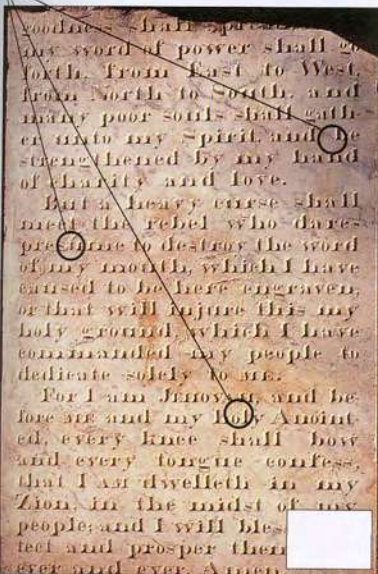 goodness shall spread
my word of power shall go
forth, from East to West,
from North to South, and
many poor souls shall gath
er unto my Spirit, and be
strengthened by my hand
of charity and love.
But a heavy curse shall
meet the rebel who dares
presume to destroy the word
of my mouth, which I have
caused to be here engraven,
or that will injure this my
holy ground which I have
commanded my people to
dedicate solely to ME.
For I am JEHOVAH, and be
fore ME and my holy Anoint
ed, every knee shall bow
and every tongue confess,
that I AM dwelleth in my
Zion, in the midst of my
people; and I will bles
tect and prosper them
ever and ever. Amen